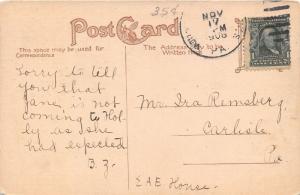 35¢
Post Card
This space may be used for
Correspondence
The Address
Written
NOV
17
PM
1908
PA.
Sorry to tell
you that
Jane is not
coming to Hol-
ly as she
had expected
B. Z.
Mr. Ira Remsberg
Carlisle
Pa
S A E House.